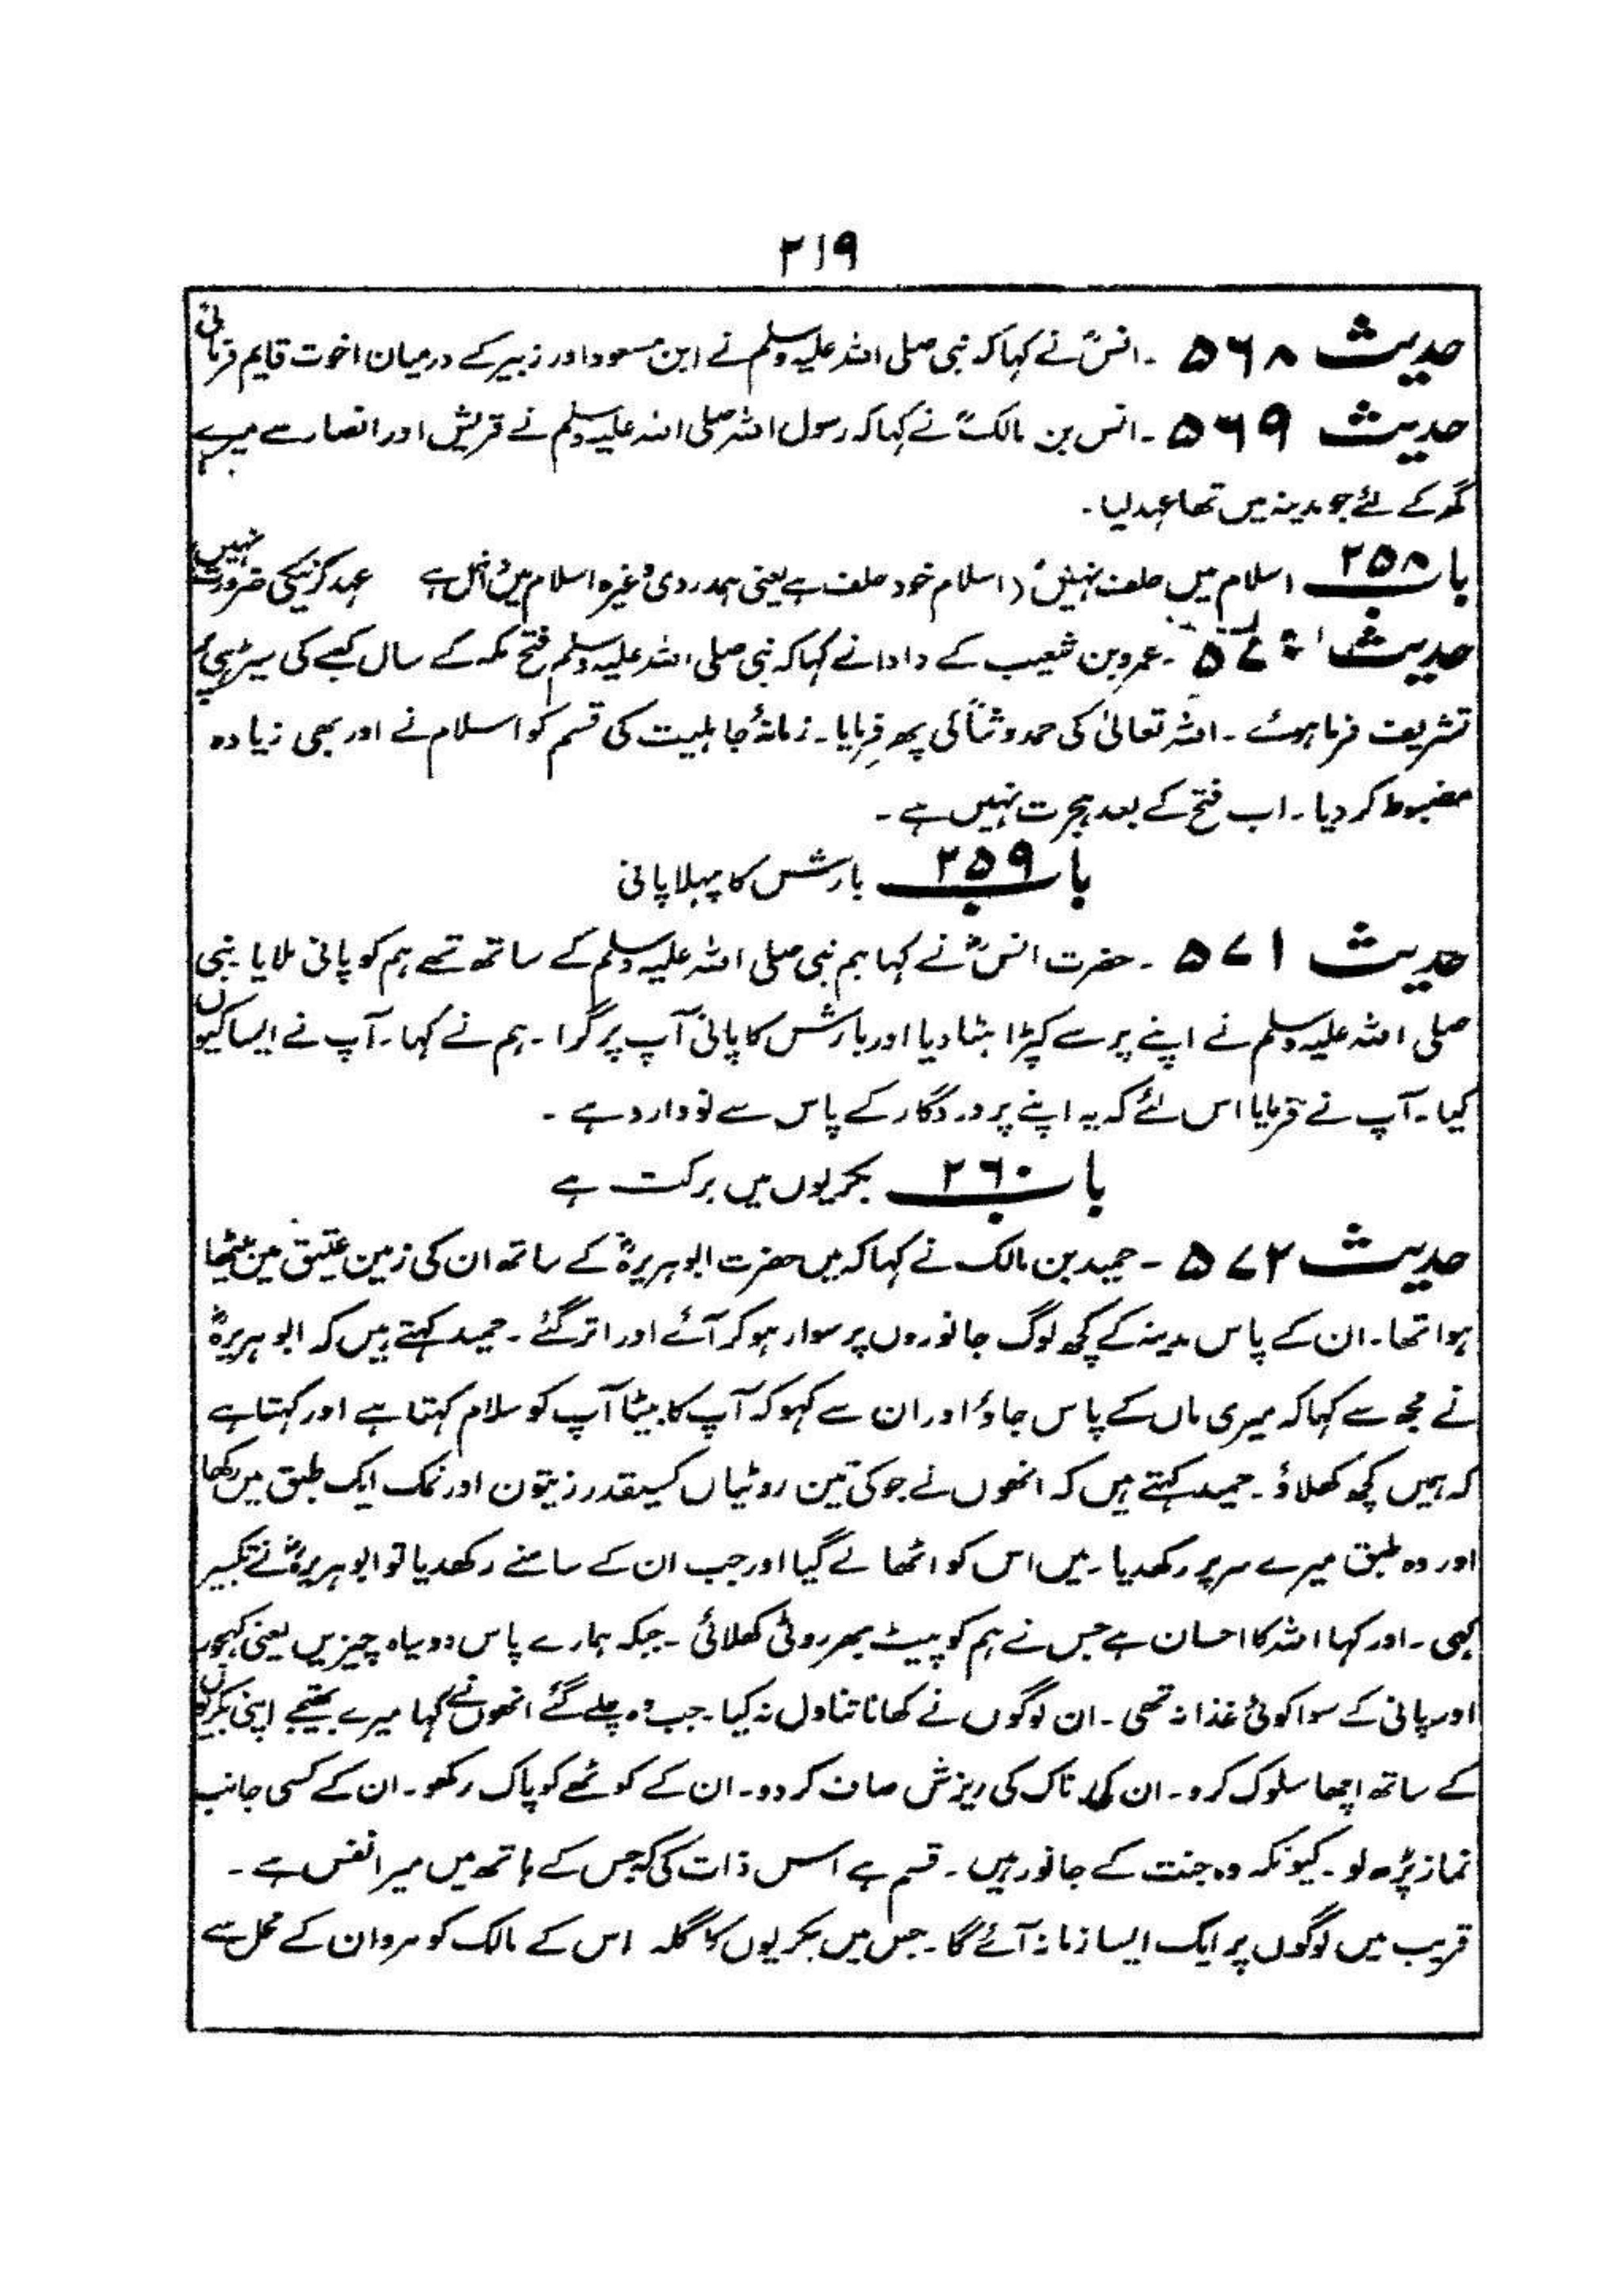 ۲۱۹
حدیث ۵۶۸ ۔ انسؓ نے کہا کہ نبی صلی اللہ علیہ وسلم نے ابن مسعود اور زبیر کے درمیان اخوت قایم فرمائی
حدیث ۵۶۹ ۔ انس بن مالکؓ نے کہا کہ رسول اللہ صلی اللہ علیہ وسلم نے قریش اور انصار سے میرے
گھر کے لئے جو مدینہ میں تھا عہد لیا ۔
باب ۲۵۸ اسلام میں حلف نہیں (اسلام خود حلف ہے یعنی ہمدردی وغیرہ اسلام میں داخل ہے عہد کرنیکی ضرورت نہیں
حدیث ۵۷۰ ۔ عمرو بن شعیب کے دادا نے کہا کہ نبی صلی اللہ علیہ وسلم فتح مکہ کے سال کعبے کی سیڑھی پر
تشریف فرما ہوئے ۔ اللہ تعالیٰ کی حمد و ثنا کی پھر فرمایا ۔ زمانۂ جاہلیت کی قسم کو اسلام نے اور بھی زیادہ
مضبوط کر دیا ۔ اب فتح کے بعد ہجرت نہیں ہے ۔
باب ۲۵۹ بارش کا پہلا پانی
حدیث ۵۷۱ ۔ حضرت انسؓ نے کہا ہم نبی صلی اللہ علیہ وسلم کے ساتھ تھے ہم کو پانی ملا یا نبی
صلی اللہ علیہ وسلم نے اپنے پر سے کپڑا ہٹا دیا اور بارش کا پانی آپ پر گرا ۔ ہم نے کہا ۔ آپ نے ایسا کیوں
کیا ۔ آپ نے فرمایا اس لئے کہ یہ اپنے پروردگار کے پاس سے نو وارد ہے ۔
باب ۲۶۰ بکریوں میں برکت ہے
حدیث ۵۷۲ ۔ حمید بن مالک نے کہا کہ میں حضرت ابو ہریرہؓ کے ساتھ ان کی زمین عتیق میں بیٹھا
ہوا تھا ۔ ان کے پاس مدینہ کے کچھ لوگ جانوروں پر سوار ہو کر آئے اور اتر گئے ۔ حمید کہتے ہیں کہ ابو ہریرہؓ
نے مجھ سے کہا کہ میری ماں کے پاس جاؤ اور ان سے کہو کہ آپ کا بیٹا آپ کو سلام کہتا ہے اور کہتا ہے
کہ ہمیں کچھ کھلاؤ ۔ حمید کہتے ہیں کہ انھوں نے جو کی تین روٹیاں کسیقدر زیتون اور نمک ایک طبق میں رکھا
اور وہ طبق میرے سر پر رکھدیا ۔ میں اس کو اٹھا لے گیا اور جب ان کے سامنے رکھدیا تو ابو ہریرہؓ نے تکبیر
کہی ۔ اور کہا اللہ کا احسان ہے جس نے ہم کو پیٹ بھر روٹی کھلائی ۔ جبکہ ہمارے پاس دو سیاہ چیزیں یعنی کھجور
اور پانی کے سوا کوئی غذا نہ تھی ۔ ان لوگوں نے کھانا تناول نہ کیا ۔ جب وہ چلے گئے انھوں نے کہا میرے بھتیجے اپنی بکریوں
کے ساتھ اچھا سلوک کرو ۔ ان کی ناک کی ریزش صاف کر دو ۔ ان کے کوٹھے کو پاک رکھو ۔ ان کے کسی جانب
نماز پڑھ لو ۔ کیونکہ وہ جنت کے جانور ہیں ۔ قسم ہے اس ذات کی کہ جس کے ہاتھ میں میرا نفس ہے ۔
قریب میں لوگوں پر ایک ایسا زمانہ آئے گا ۔ جس میں بکریوں کا گلہ اس کے مالک کو مروان کے محل سے